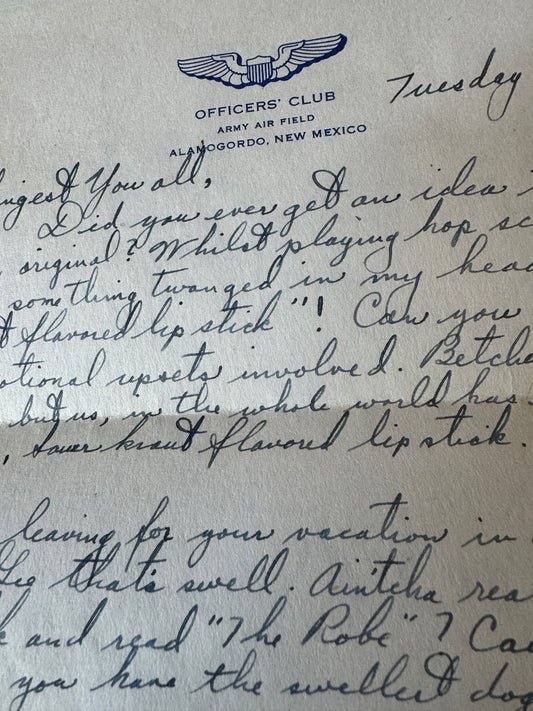 OFFICERS' CLUB
ARMY AIR FIELD
ALAMOGORDO, NEW MEXICO
Tuesday
You all,
Did you ever get an idea
original? Whilst playing hop sc
something twanged in my head
flavored lip stick"! Can you
otional upsets involved. Betche
but us, in the whole world has
, sauer kraut flavored lip stick.
leaving for your vacation in
Gee that's swell. Ain'tcha rea
and read "The Robe"? Ca
you have the swellest dog